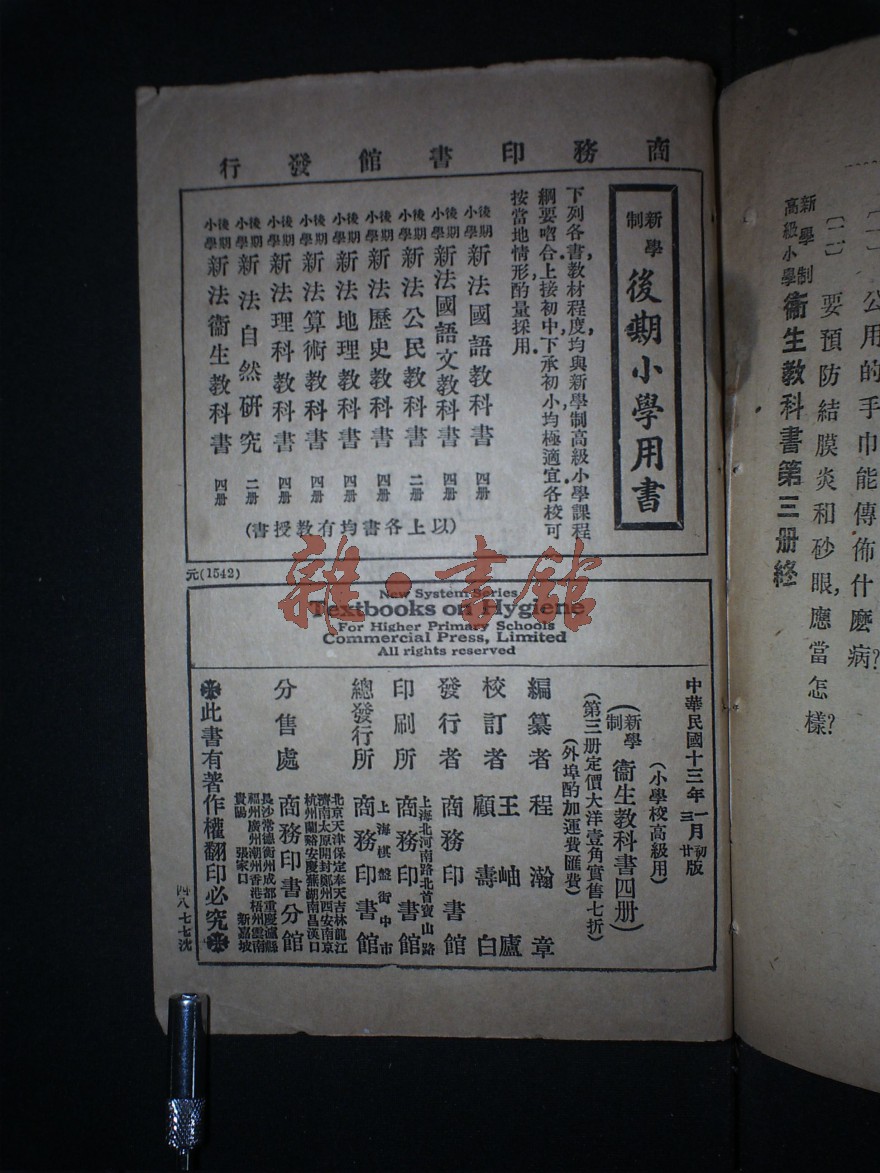 公用的手巾能傳佈什麼病?
(二)要預防結膜炎和砂眼,應當怎樣?
新學制高級小學衞生教科書第三册終
商務印書館發行
新學制後期小學用書
下列各書,教材程度,均與新學制高級小學課程
綱要㗇合,上接初中,下承初小,均極適宜.各校可
按當地情形,酌量採用.
後期小學新法國語教科書 四册
後期小學新法國語文教科書 四册
後期小學新法公民教科書 二册
後期小學新法歷史教科書 四册
後期小學新法地理教科書 四册
後期小學新法算術教科書 四册
後期小學新法理科教科書 四册
後期小學新法自然研究 二册
後期小學新法衞生教科書 四册
(以上各書均有教授書)
元(1542)
New System Series
Textbooks on Hygiene
For Higher Primary Schools
Commercial Press, Limited
All rights reserved
中華民國十三年一月初版
(小學校高級用)
(新學制衞生教科書四册)
(第三册定價大洋壹角實售七折)
(外埠酌加運費匯費)
編纂者 程瀚章
校訂者 王岫廬
顧壽白
發行者 商務印書館
印刷所 上海北河南路北首寶山路
商務印書館
總發行所 上海棋盤街中市
商務印書館
分售處 北京天津保定奉天吉林龍江
濟南太原開封鄭州西安南京
杭州蘭谿安慶蕪湖南昌漢口
商務印書分館
長沙常德衡州成都重慶瀘縣
福州廣州潮州香港梧州雲南
貴陽 張家口 新嘉坡
此書有著作權翻印必究
四八七七沈
雜·書館